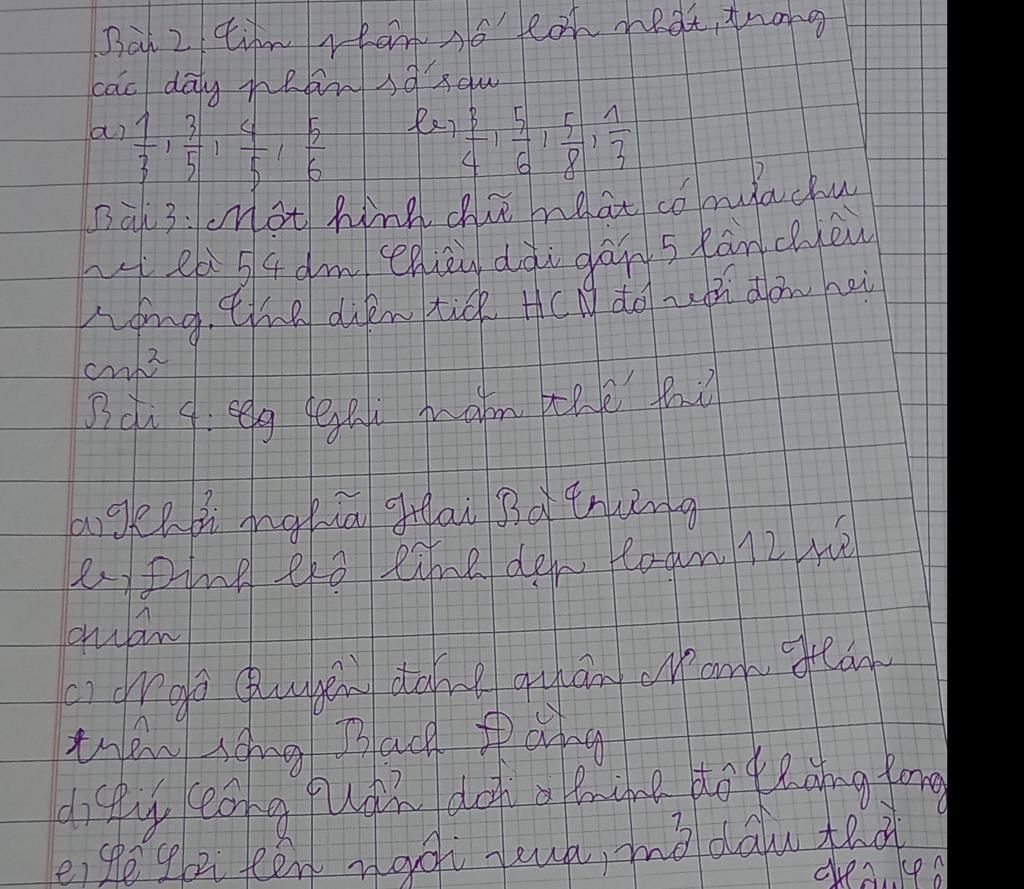 Bài 2. Tìm phân số lớn nhất, trong
các dãy phân số sau
a, 1/3, 3/5, 4/5, 5/6 b, 3/4, 5/6, 5/8, 1/3
Bài 3: Một hình chữ nhật có nửa chu
vi là 54 dm. Chiều dài gấp 5 lần chiều
rộng. Tính diện tích HCN đó với đơn vị
cm²
Bài 4: Ghi năm thế kỉ
a, Khởi nghĩa Hai Bà Trưng
b, Đinh Bộ Lĩnh dẹp loạn 12 sứ
quân
c, Ngô Quyền đánh quân Nam Hán
trên sông Bạch Đằng
d, Lý Công Uẩn dời kinh đô Thăng Long
e, Lê Lợi lên ngôi vua, mở đầu thời
Hậu Lê